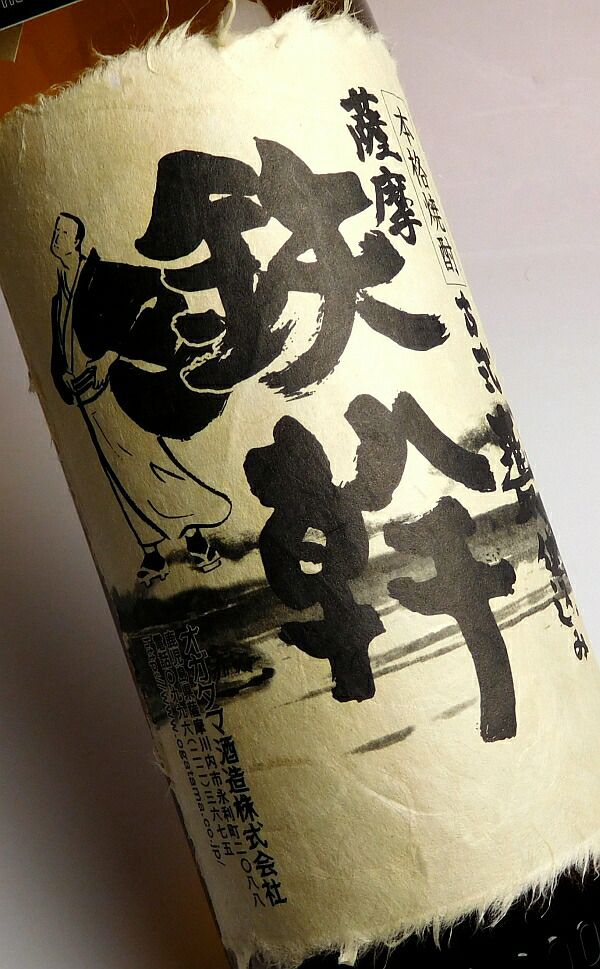 本格焼酎
薩摩
古式
鉄幹
オガタマ酒造株式会社
鹿児島県薩摩川内市永利町二〇八八
電話〇九九六(二二)三六七五
http://www.ogatama.co.jp/